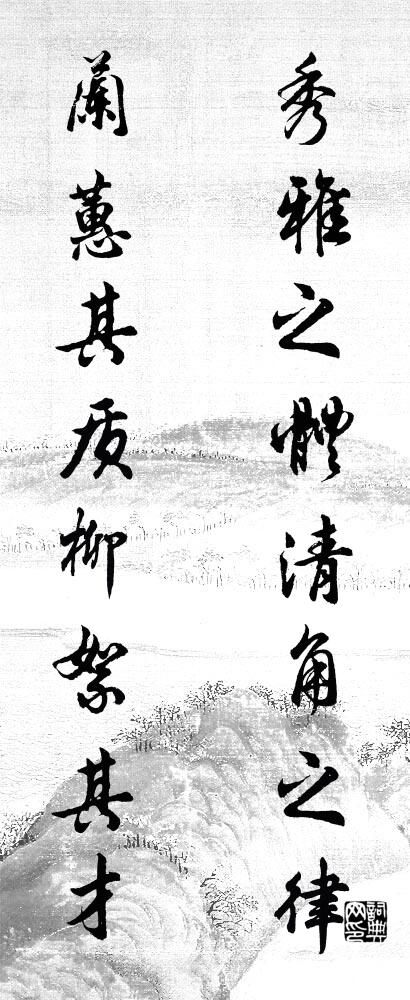 秀雅之體清角之律
蘭蕙其质柳絮其才
詞典網印